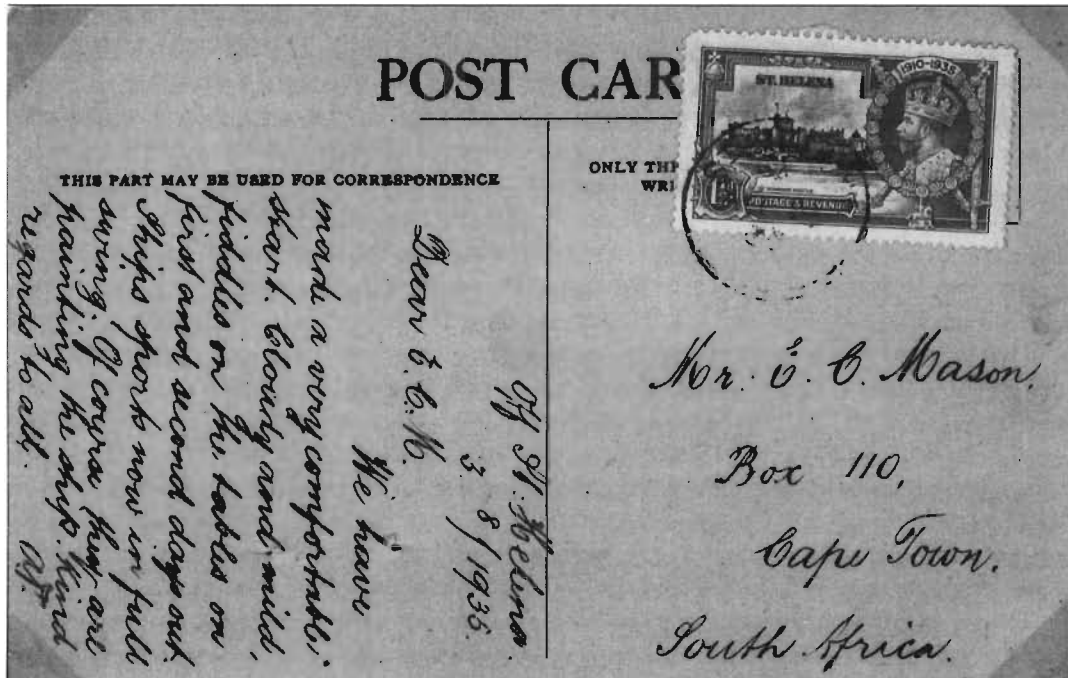 POST CAR
THIS PART MAY BE USED FOR CORRESPONDENCE
ONLY THE
WRI
1910-1935
ST. HELENA
POSTAGE & REVENUE
Off St. Helena.
3/8/1935.
Dear E. C. M.
We have
made a very comfortable
start. Cloudy and mild,
fiddles on the tables on
first and second days out.
Ships sport now in full
swing. Of course they are
painting the ship. Kind
regards to all.
Mr. E. C. Mason.
Box 110,
Cape Town.
South Africa.